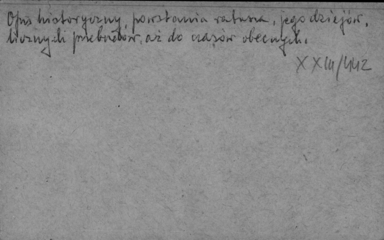 Opis historyczny, powstania ratusza, jego dziejów,
licznych przebudów, aż do czasów obecnych.
XXIII/442